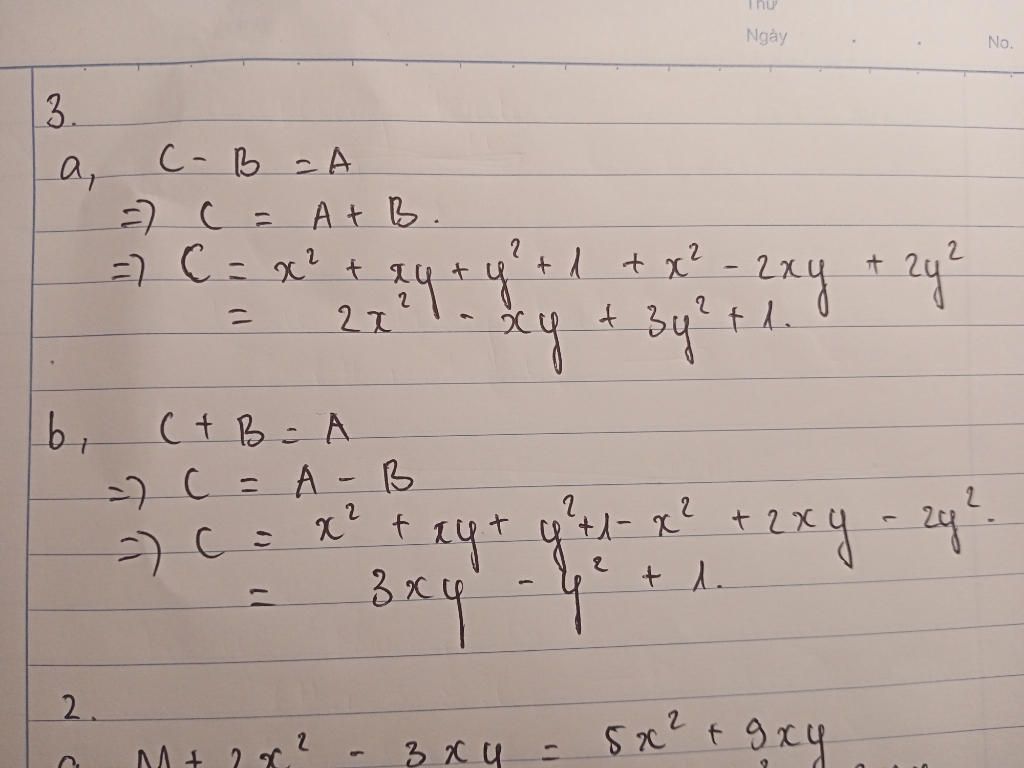 Thứ
Ngày . . No.
3.
a, C - B = A
=> C = A + B.
=> C = x² + xy + y² + 1 + x² - 2xy + 2y²
= 2x² - xy + 3y² + 1.
b, C + B = A
=> C = A - B
=> C = x² + xy + y² + 1 - x² + 2xy - 2y².
= 3xy - y² + 1.
2.
a M + 2x² - 3xy = 5x² + 9xy